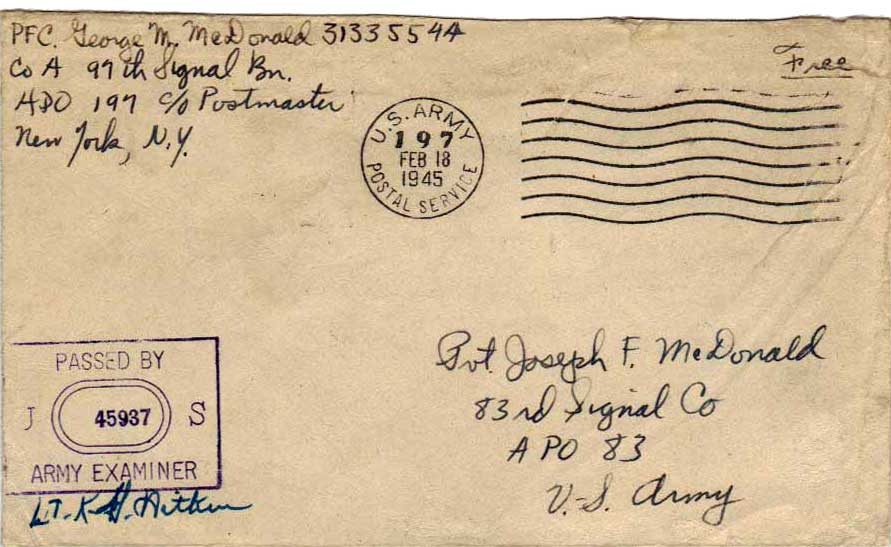 PFC. George M. McDonald 31335544
Co A 97th Signal Bn.
APO 197 c/o Postmaster
New York, N.Y.
Free
U.S. ARMY
197
FEB 18
1945
POSTAL SERVICE
Pvt. Joseph F. McDonald
83rd Signal Co
APO 83
U.S. Army
PASSED BY
J 45937 S
ARMY EXAMINER
LT. K. G. Aitken